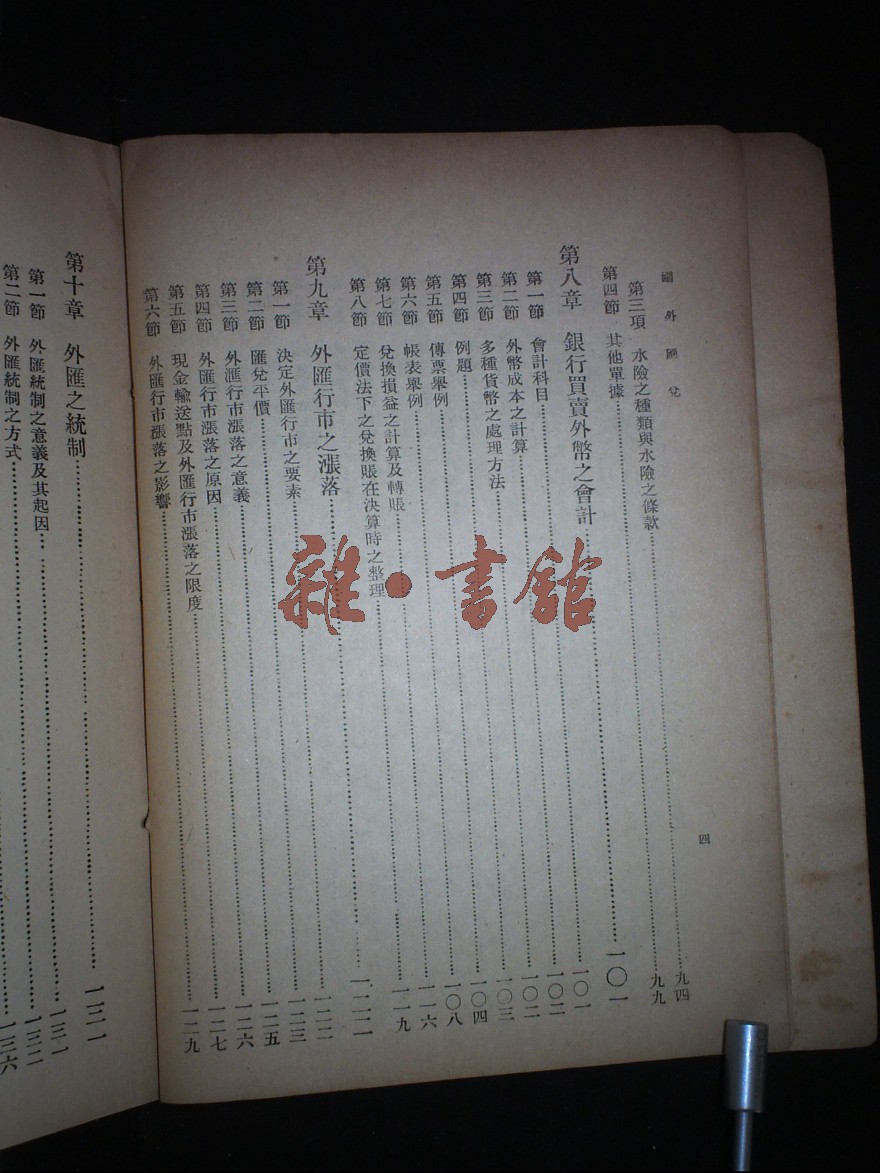 國外匯兌
四
第三項 水險之種類與水險之條款……九四
第四節 其他單據……九九
第八章 銀行買賣外幣之會計……一〇一
第一節 會計科目……一〇一
第二節 外幣成本之計算……一〇二
第三節 多種貨幣之處理方法……一〇二
第四節 例題……一〇三
第五節 傳票舉例……一〇四
第六節 帳表舉例……一〇八
第七節 兌換損益之計算及轉賬……一一六
第八節 定價法下之兌換賬在決算時之整理……一一九
第九章 外匯行市之漲落……一二二
第一節 決定外匯行市之要素……一二二
第二節 匯兌平價……一二三
第三節 外滙行市漲落之意義……一二五
第四節 外匯行市漲落之原因……一二六
第五節 現金輸送點及外匯行市漲落之限度……一二七
第六節 外匯行市漲落之影響……一二九
第十章 外匯之統制……一三一
第一節 外匯統制之意義及其起因……一三一
第二節 外匯統制之方式……一三二
一三六
雜·書館